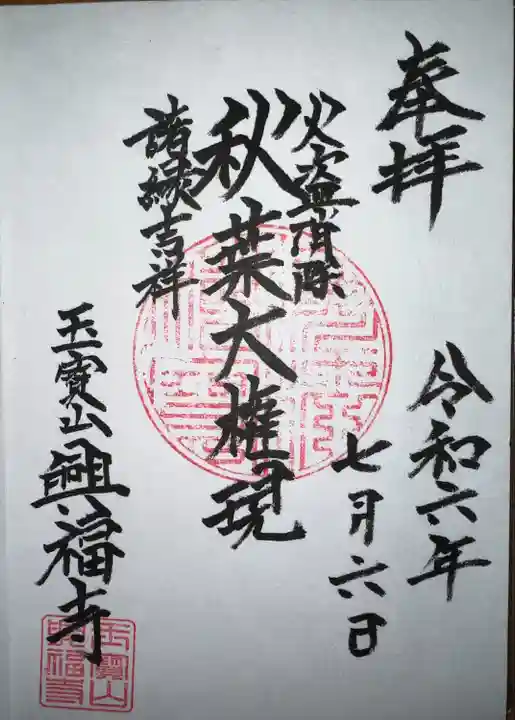 奉拝
令和六年
七月六日
火盗消除
秋葉大権現
諸縁吉祥
玉寶山興福寺
玉寶山
興福寺